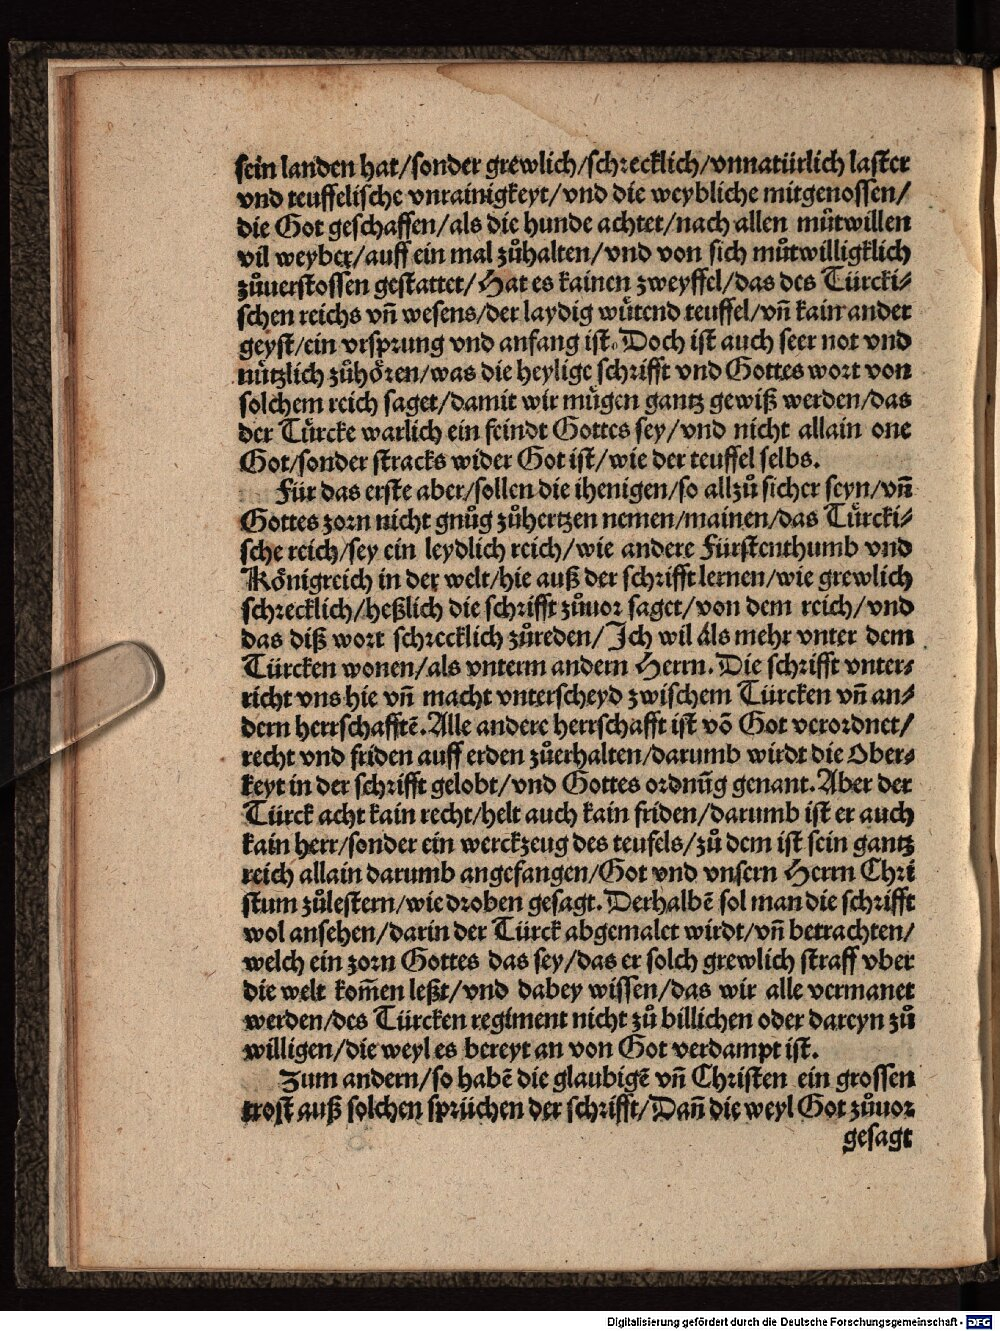 sein landen hat/sonder grewlich/schrecklich/vnnatürlich laster
vnd teuffelische vnrainigkeyt/vnd die weybliche mitgenossen/
die Got geschaffen/als die hunde achtet/nach allen můtwillen
vil weyber/auff ein mal zůhalten/vnd von sich můtwilligklich
zůuerstossen gestattet/Hat es kainen zweyffel/das des Türcki-
schen reichs vn̄ wesens/der laydig wütend teuffel/vn̄ kain ander
geyst/ein vrsprung vnd anfang ist. Doch ist auch seer not vnd
nützlich zůhören/was die heylige schrifft vnd Gottes wort von
solchem reich saget/damit wir mügen gantz gewiß werden/das
der Türcke warlich ein feindt Gottes sey/vnd nicht allain one
Got/sonder stracks wider Got ist/wie der teuffel selbs.
Für das erste aber/sollen die ihenigen/so allzů sicher seyn/vn̄
Gottes zorn nicht gnůg zůhertzen nemen/mainen/das Türcki-
sche reich/sey ein leydlich reich/wie andere Fürstenthumb vnd
Königreich in der welt/hie auß der schrifft lernen/wie grewlich
schrecklich/heßlich die schrifft zůuor saget/von dem reich/vnd
das diß wort schrecklich zůreden/Ich wil als mehr vnter dem
Türcken wonen/als vnterm andern Herrn. Die schrifft vnter-
richt vns hie vn̄ macht vnterscheyd zwischem Türcken vn̄ an-
dern herrschafftē. Alle andere herrschafft ist vō Got verordnet/
recht vnd friden auff erden zůerhalten/darumb wirdt die Ober-
keyt in der schrifft gelobt/vnd Gottes ordnūg genant. Aber der
Türck acht kain recht/helt auch kain friden/darumb ist er auch
kain herr/sonder ein werckzeug des teufels/zů dem ist sein gantz
reich allain darumb angefangen/Got vnd vnsern Herrn Chri
stum zůlestern/wie droben gesagt. Derhalbē sol man die schrifft
wol ansehen/darin der Türck abgemalet wirdt/vn̄ betrachten/
welch ein zorn Gottes das sey/das er solch grewlich straff vber
die welt kom̄en leßt/vnd dabey wissen/das wir alle vermanet
werden/des Türcken regiment nicht zů billichen oder dareyn zů
willigen/die weyl es bereyt an von Got verdampt ist.
Zum andern/so habē die glaubigē vn̄ Christen ein grossen
trost auß solchen sprüchen der schrifft/Dan̄ die weyl Got zůuor
gesagt
Digitalisierung gefördert durch die Deutsche Forschungsgemeinschaft - DFG